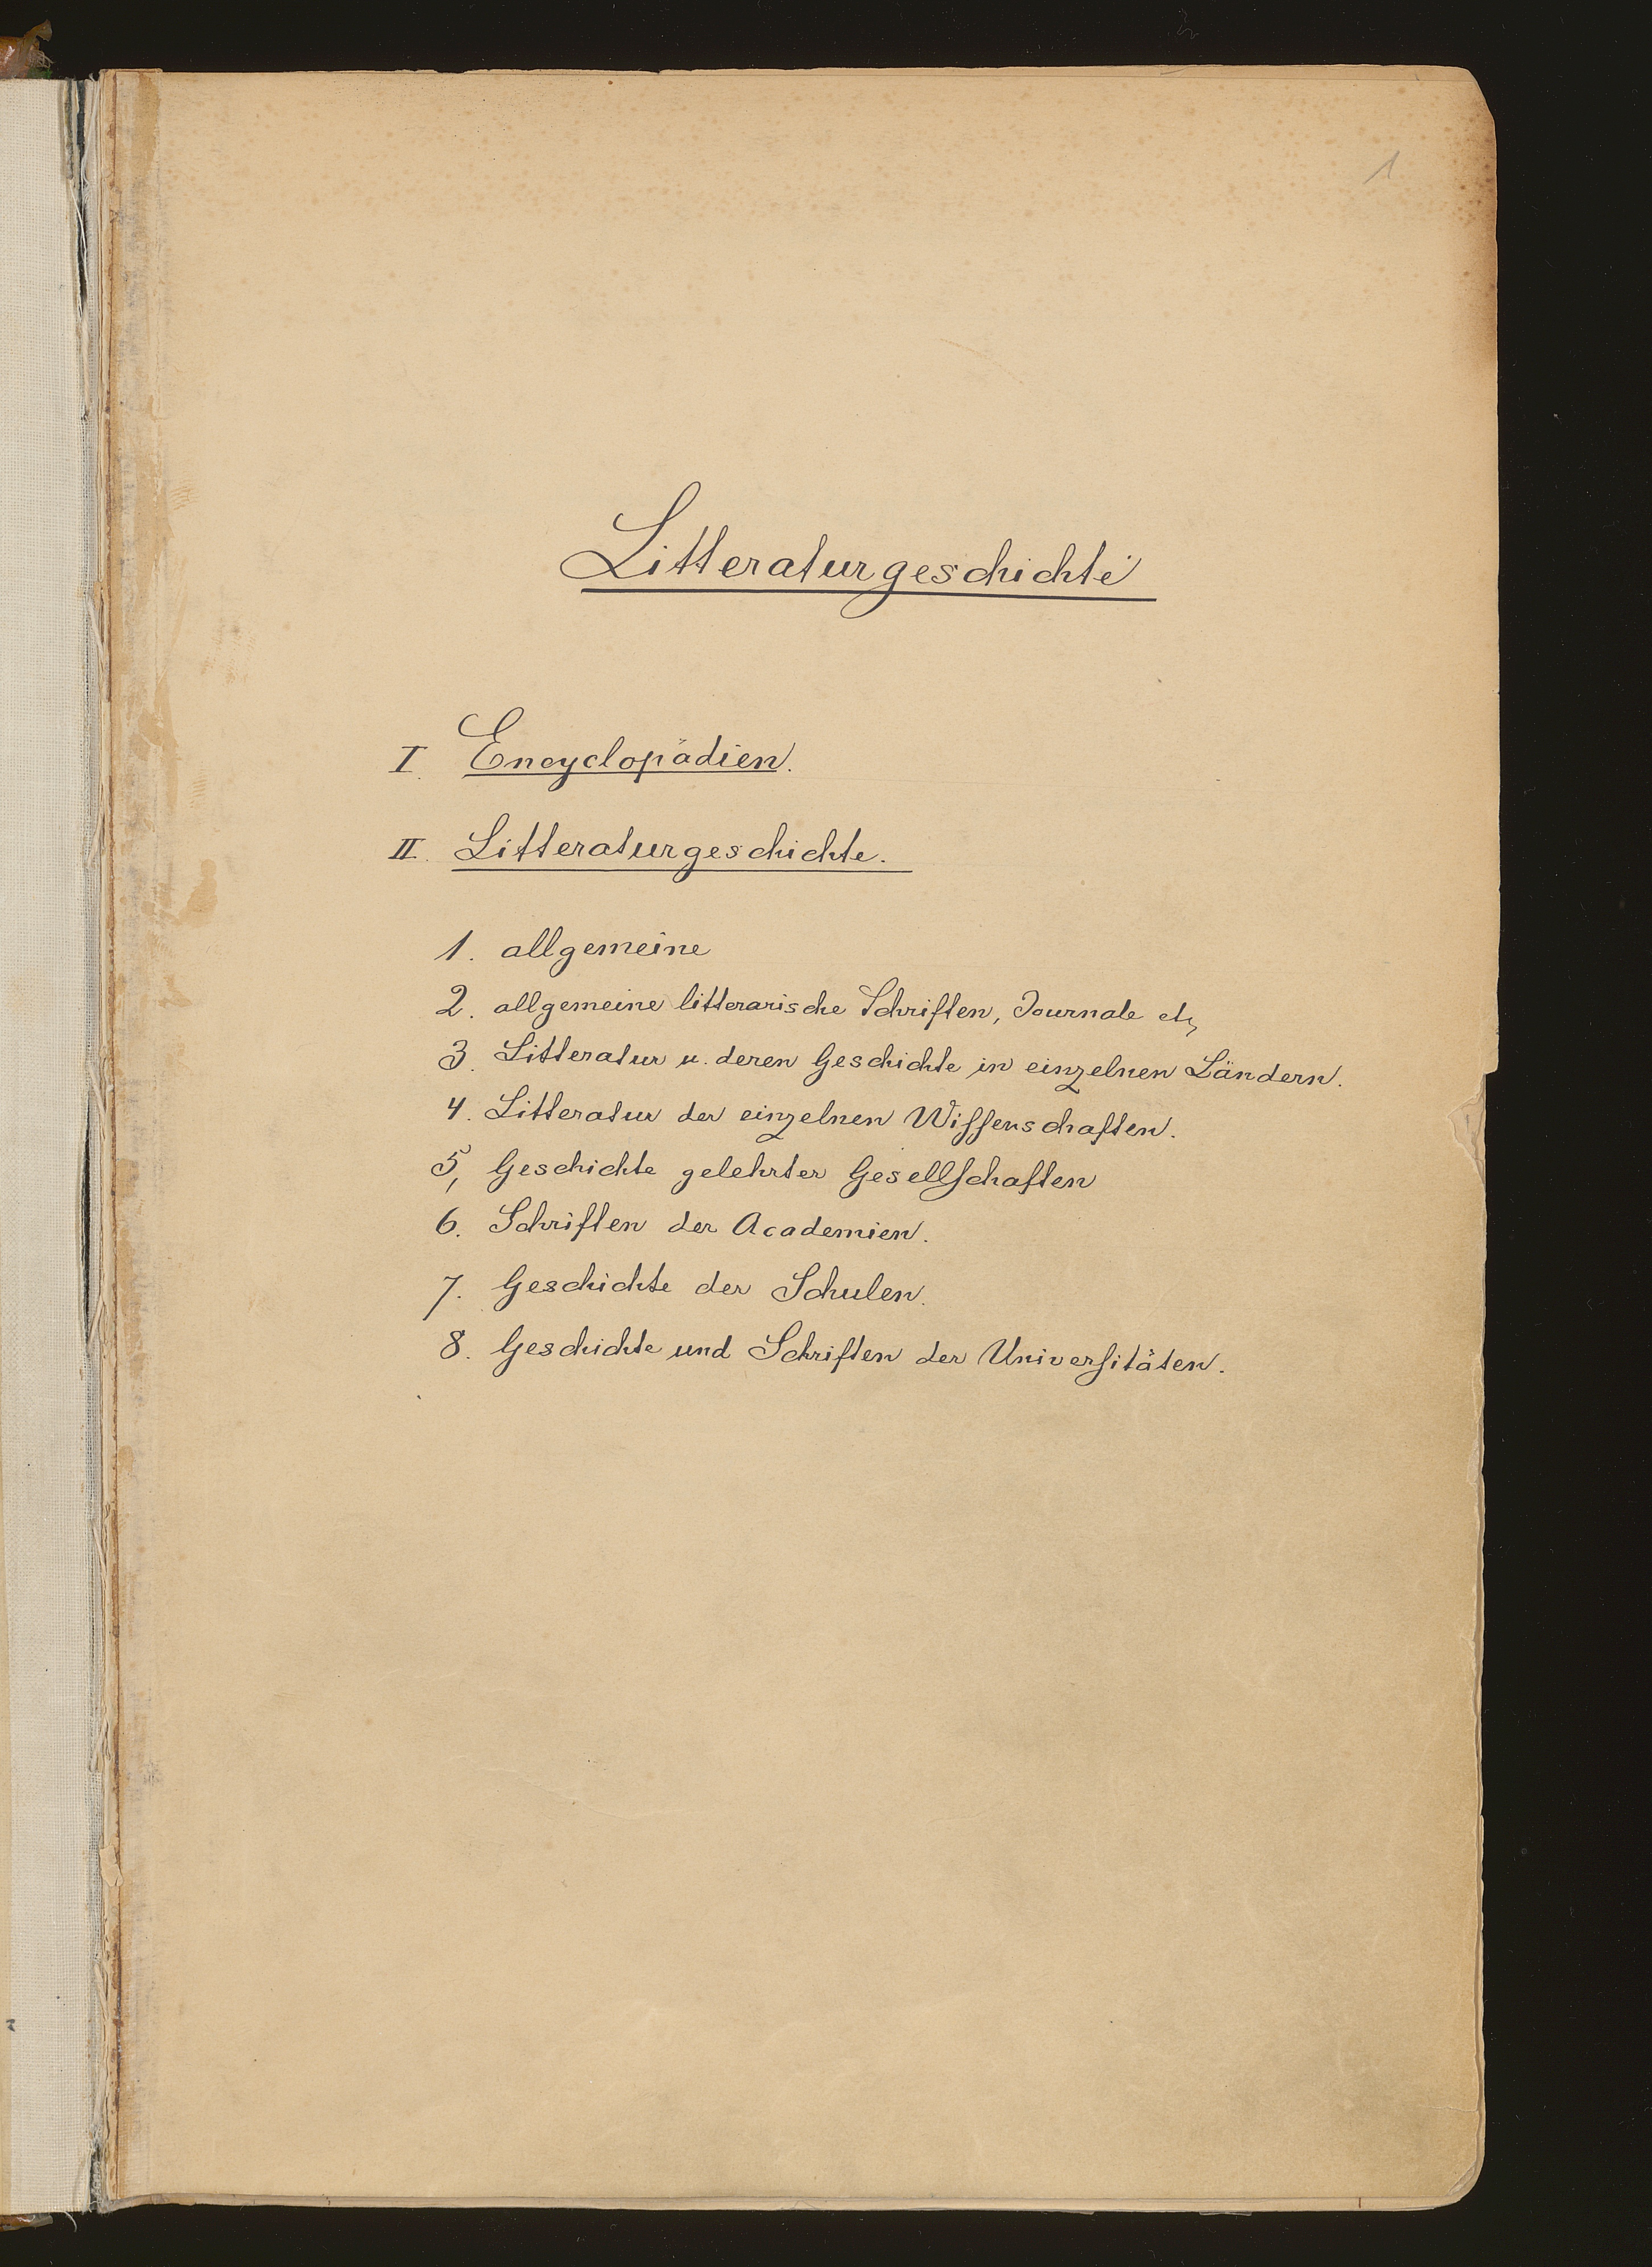 1
Litteraturgeschichte
I. Encyclopädien.
II. Litteraturgeschichte.
1. allgemeine
2. allgemeine litterarische Schriften, Journale etc,
3. Litteratur u. deren Geschichte in einzelnen Ländern.
4. Litteratur der einzelnen Wiſſenschaften.
5, Geschichte gelehrter Gesellſchaften
6. Schriften der Academien.
7. Geschichte der Schulen.
8. Geschichte und Schriften der Univerſitäten.